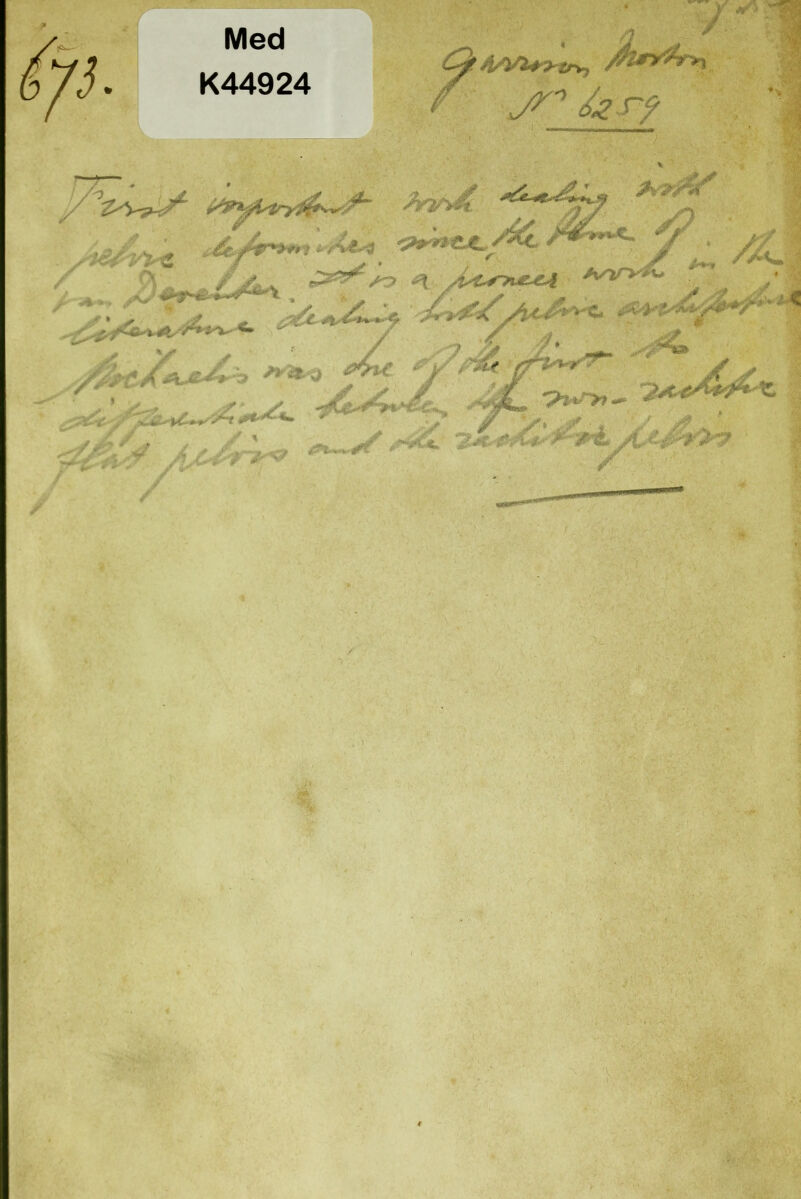 673.
Med
K44924
Garrison Morton
No 6259
First important work dealing with
pelvic deformities since the time of
van Deventer. It is a pioneer work in the
literature dealing with pelvic architecture
Michaelis was one of the first to
differentiate between the non-rachitic
flat pelvis and the rachitic pelvis